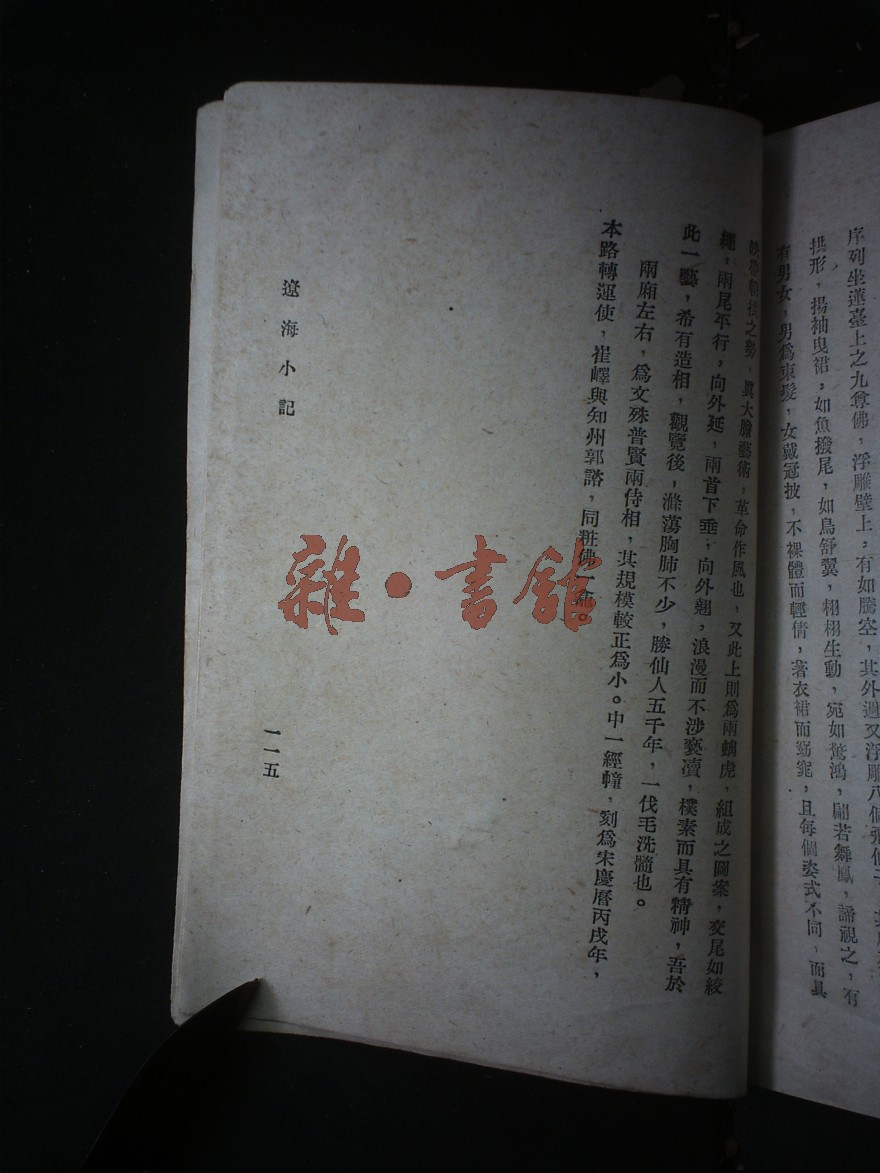 序列坐蓮臺上之九尊佛，浮雕壁上，有如騰空，其外週又浮雕八個飛仙
拱形，揚袖曳裙，如魚撥尾，如鳥舒翼，栩栩生動，宛如驚鴻，翩若舞鳳，諦視之，有
有男女，男爲束髮，女戴冠披，不裸體而輕倩，著衣裙而窈窕，且每個姿式不同，而具
之勢，眞大膽藝術，革命作風也，又此上則爲兩螭虎，組成之圖案，交尾如絞
繩，兩尾平行，向外延，兩首下垂，向外翹，浪漫而不涉褻瀆，樸素而具有精神，吾於
此一藝，希有造相，觀覽後，滌蕩胸肺不少，勝仙人五千年，一伐毛洗髓也。
兩廂左右，爲文殊普賢兩侍相，其規模較正爲小。中一經幢，刻爲宋慶曆丙戌年，
本路轉運使，崔嶧與知州郭諮，同粧佛一龕。
遼海小記
一一五
雜·書館